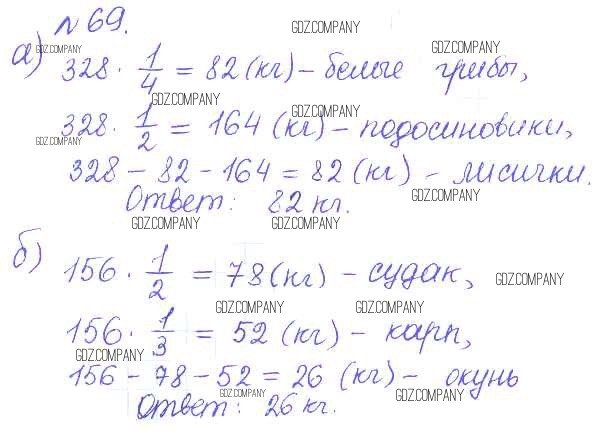 № 69.
GDZ.COMPANY
а) GDZ.COMPANY GDZ.COMPANY
328 · 1/4 = 82 (кг) – белые грибы,
GDZ.COMPANY GDZ.COMPANY
328 · 1/2 = 164 (кг) – подосиновики,
GDZ.COMPANY
328 – 82 – 164 = 82 (кг) – лисички.
GDZ.COMPANY
Ответ: 82 кг.
GDZ.COMPANY GDZ.COMPANY
б) 156 · 1/2 = 78 (кг) – судак,
GDZ.COMPANY
GDZ.COMPANY GDZ.COMPANY
156 · 1/3 = 52 (кг) – карп,
GDZ.COMPANY
156 – 78 – 52 = 26 (кг) – окунь
GDZ.COMPANY GDZ.COMPANY
Ответ: 26 кг.